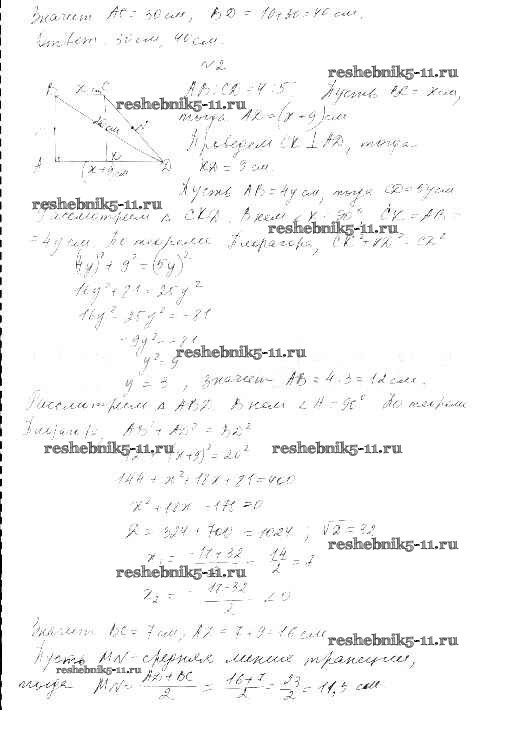 Значит AC = 30 см, BD = 10+30 = 40 см.
Ответ: 30 см, 40 см.
№2
reshebnik5-11.ru
B x см C
AB:CD = 4:5. Пусть BC = x см,
reshebnik5-11.ru
тогда AD = (x+9) см
20 см
Проведем CK ⊥ AD, тогда
A K D
(x+9) см
KD = 9 см.
Пусть AB = 4y см, тогда CD = 5y см
reshebnik5-11.ru
Рассмотрим Δ CKD. В нем ∠K = 90°, CK = AB =
reshebnik5-11.ru
= 4y см По теореме Пифагора, CK² + KD² = CD²
(4y)² + 9² = (5y)²
16y² + 81 = 25y²
16y² - 25y² = -81
-9y² = -81
y² = 9
reshebnik5-11.ru
y = 3, значит AB = 4·3 = 12 см.
Рассмотрим Δ ABD. В нем ∠A = 90° По теореме
Пифагора, AB² + AD² = BD²
reshebnik5-11.ru
(x+9)² = 20²
reshebnik5-11.ru
144 + x² + 18x + 81 = 400
x² + 18x - 175 = 0
D = 324 + 700 = 1024; √D = 32
reshebnik5-11.ru
x₁ = -18+32 / 2 = 14/2 = 7
reshebnik5-11.ru
x₂ = -18-32 / 2 < 0
Значит BC = 7 см, AD = 7+9 = 16 см
reshebnik5-11.ru
Пусть MN - средняя линия трапеции,
reshebnik5-11.ru
тогда MN = AD+BC / 2 = 16+7 / 2 = 23/2 = 11,5 см